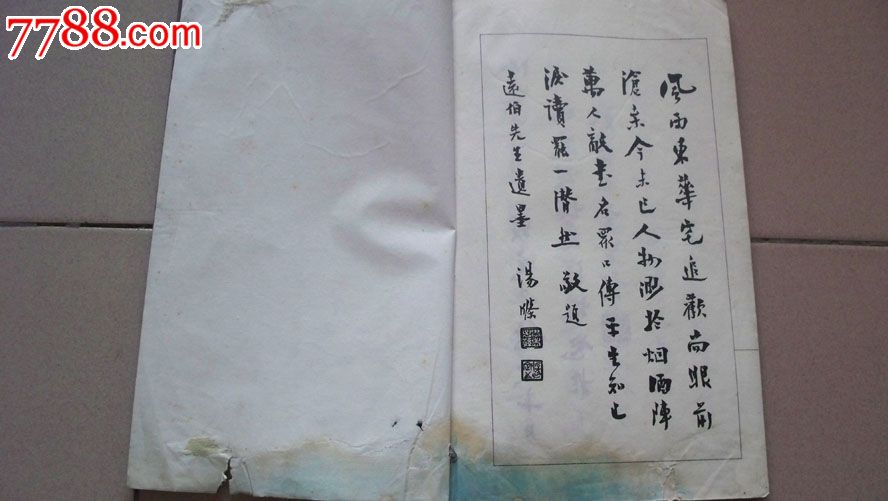 7788.com
風雨東華宅追歡尚眼前
滄桑今未已人物渺於烟酒陣
萬人敵書名眾口傳平生知己
淚讀罷一潸然 敬題
遠伯先生遺墨 湯滌